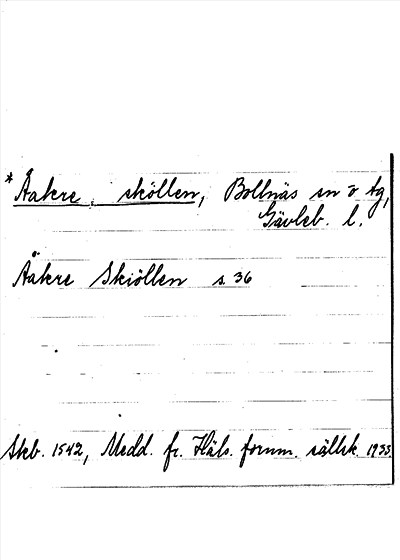 * Åakre, sköllen, Bollnäs sn o tg,
Gävleb. l.
Åäkre Skiöllen s. 36
Skb. 1542, Medd. fr. Häls. fornm. sällsk. 1933.